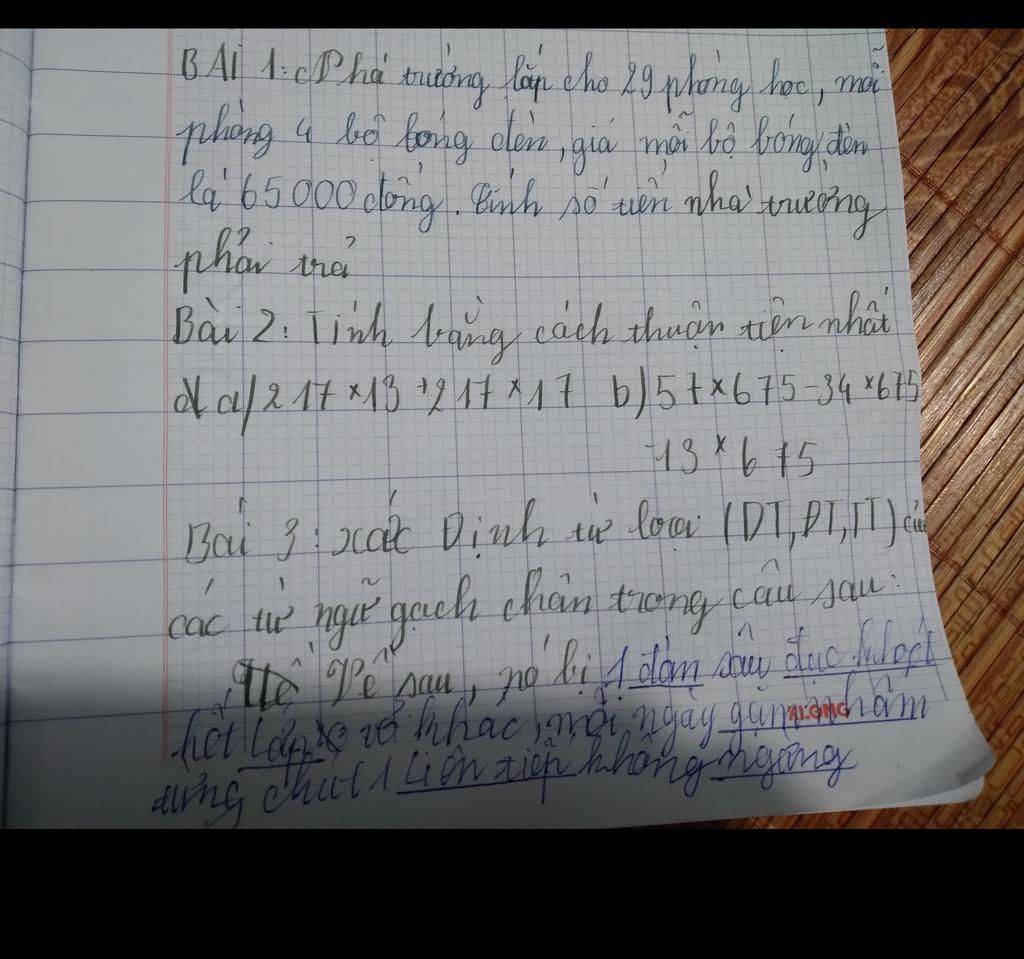 BÀI 1: Nhà trường lắp cho 29 phòng học, mỗi
phòng 4 bộ bóng đèn, giá mỗi bộ bóng đèn
là 65000 đồng. Tính số tiền nhà trường
phải trả
Bài 2: Tính bằng cách thuận tiện nhất
a/ 217 × 13 + 217 × 17 b) 57 × 675 - 34 × 675
- 13 × 675
Bài 3: xác Định từ loại (DT, ĐT, TT) của
các từ ngữ gạch chân trong câu sau:
Về sau, nó bị 1 đám sâu đục khoét
hết lớp vỏ khác, mỗi ngày gặm nhấm
từng chút 1 liên tiếp không ngừng